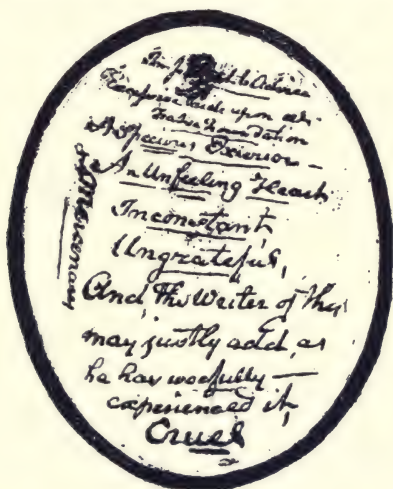 upon
Foundation
A Specious Exterior —
An Unfeeling Heart
Inconstant,
Ungrateful,
And, The Writer of this
may justly add, as
he has woefully —
experienced it,
Cruel
Mercenary